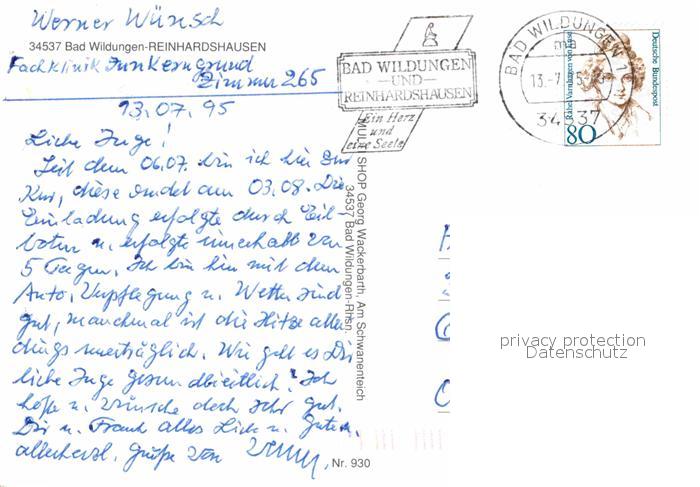 Werner Wünsch
34537 Bad Wildungen-REINHARDSHAUSEN
Fachklinik Junkerngrund
Zimmer 265
13.07.95
Liebe Inge!
Seit dem 06.07. bin ich hier zur
Kur, diese endet am 03.08. Die
Einladung erfolgte durch Eil-
boten u. erfolgte innerhalb von
5 Tagen. Ich bin hin mit dem
Auto. Verpflegung u. Wetter sind
gut, manchmal ist die Hitze aller-
dings unerträglich. Wie geht es Dir
liebe Inge gesundheitlich? Ich
hoffe u. wünsche doch sehr gut.
Dir u. Frank alles Liebe u. Gute
allerherzl. Grüße von Werner
BAD WILDUNGEN
UND
REINHARDSHAUSEN
Ein Herz
und
eine Seele
BAD WILDUNGEN 1
ma
13.-7.95
34537
Rahel Varnhagen von Ense
Deutsche Bundespost
80
MULTI SHOP Georg Wackerbarth, Am Schwanenteich
34537 Bad Wildungen-Rhsn.
Nr. 930
privacy protection
Datenschutz